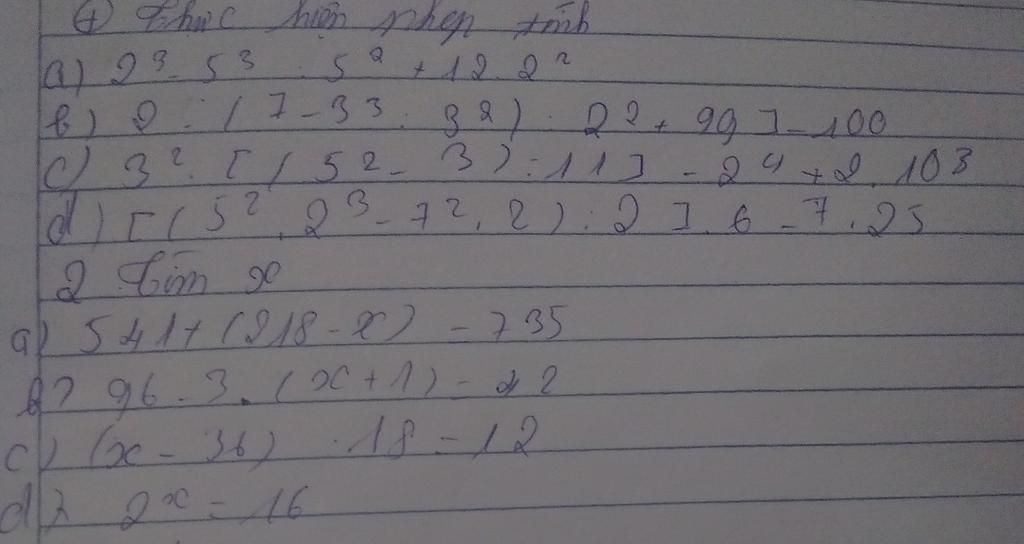 ① thực hiện phép tính
a) 2³ - 5³ : 5² + 12. 2²
b) 2 : ( 7 - 3³ : 3² ) : 2² + 99 ] - 100
c) 3² . [ ( 5² - 3 ) : 11 ] - 2⁴ + 2. 10³
d) [ ( 5² . 2³ - 7² . 2 ) : 2 ] . 6 - 7 . 25
2 tìm x
a) 541 + ( 218 - x ) = 735
b) 96 - 3 . ( x + 1 ) = 42
c) ( x - 36 ) : 18 = 12
d) 2ˣ = 16